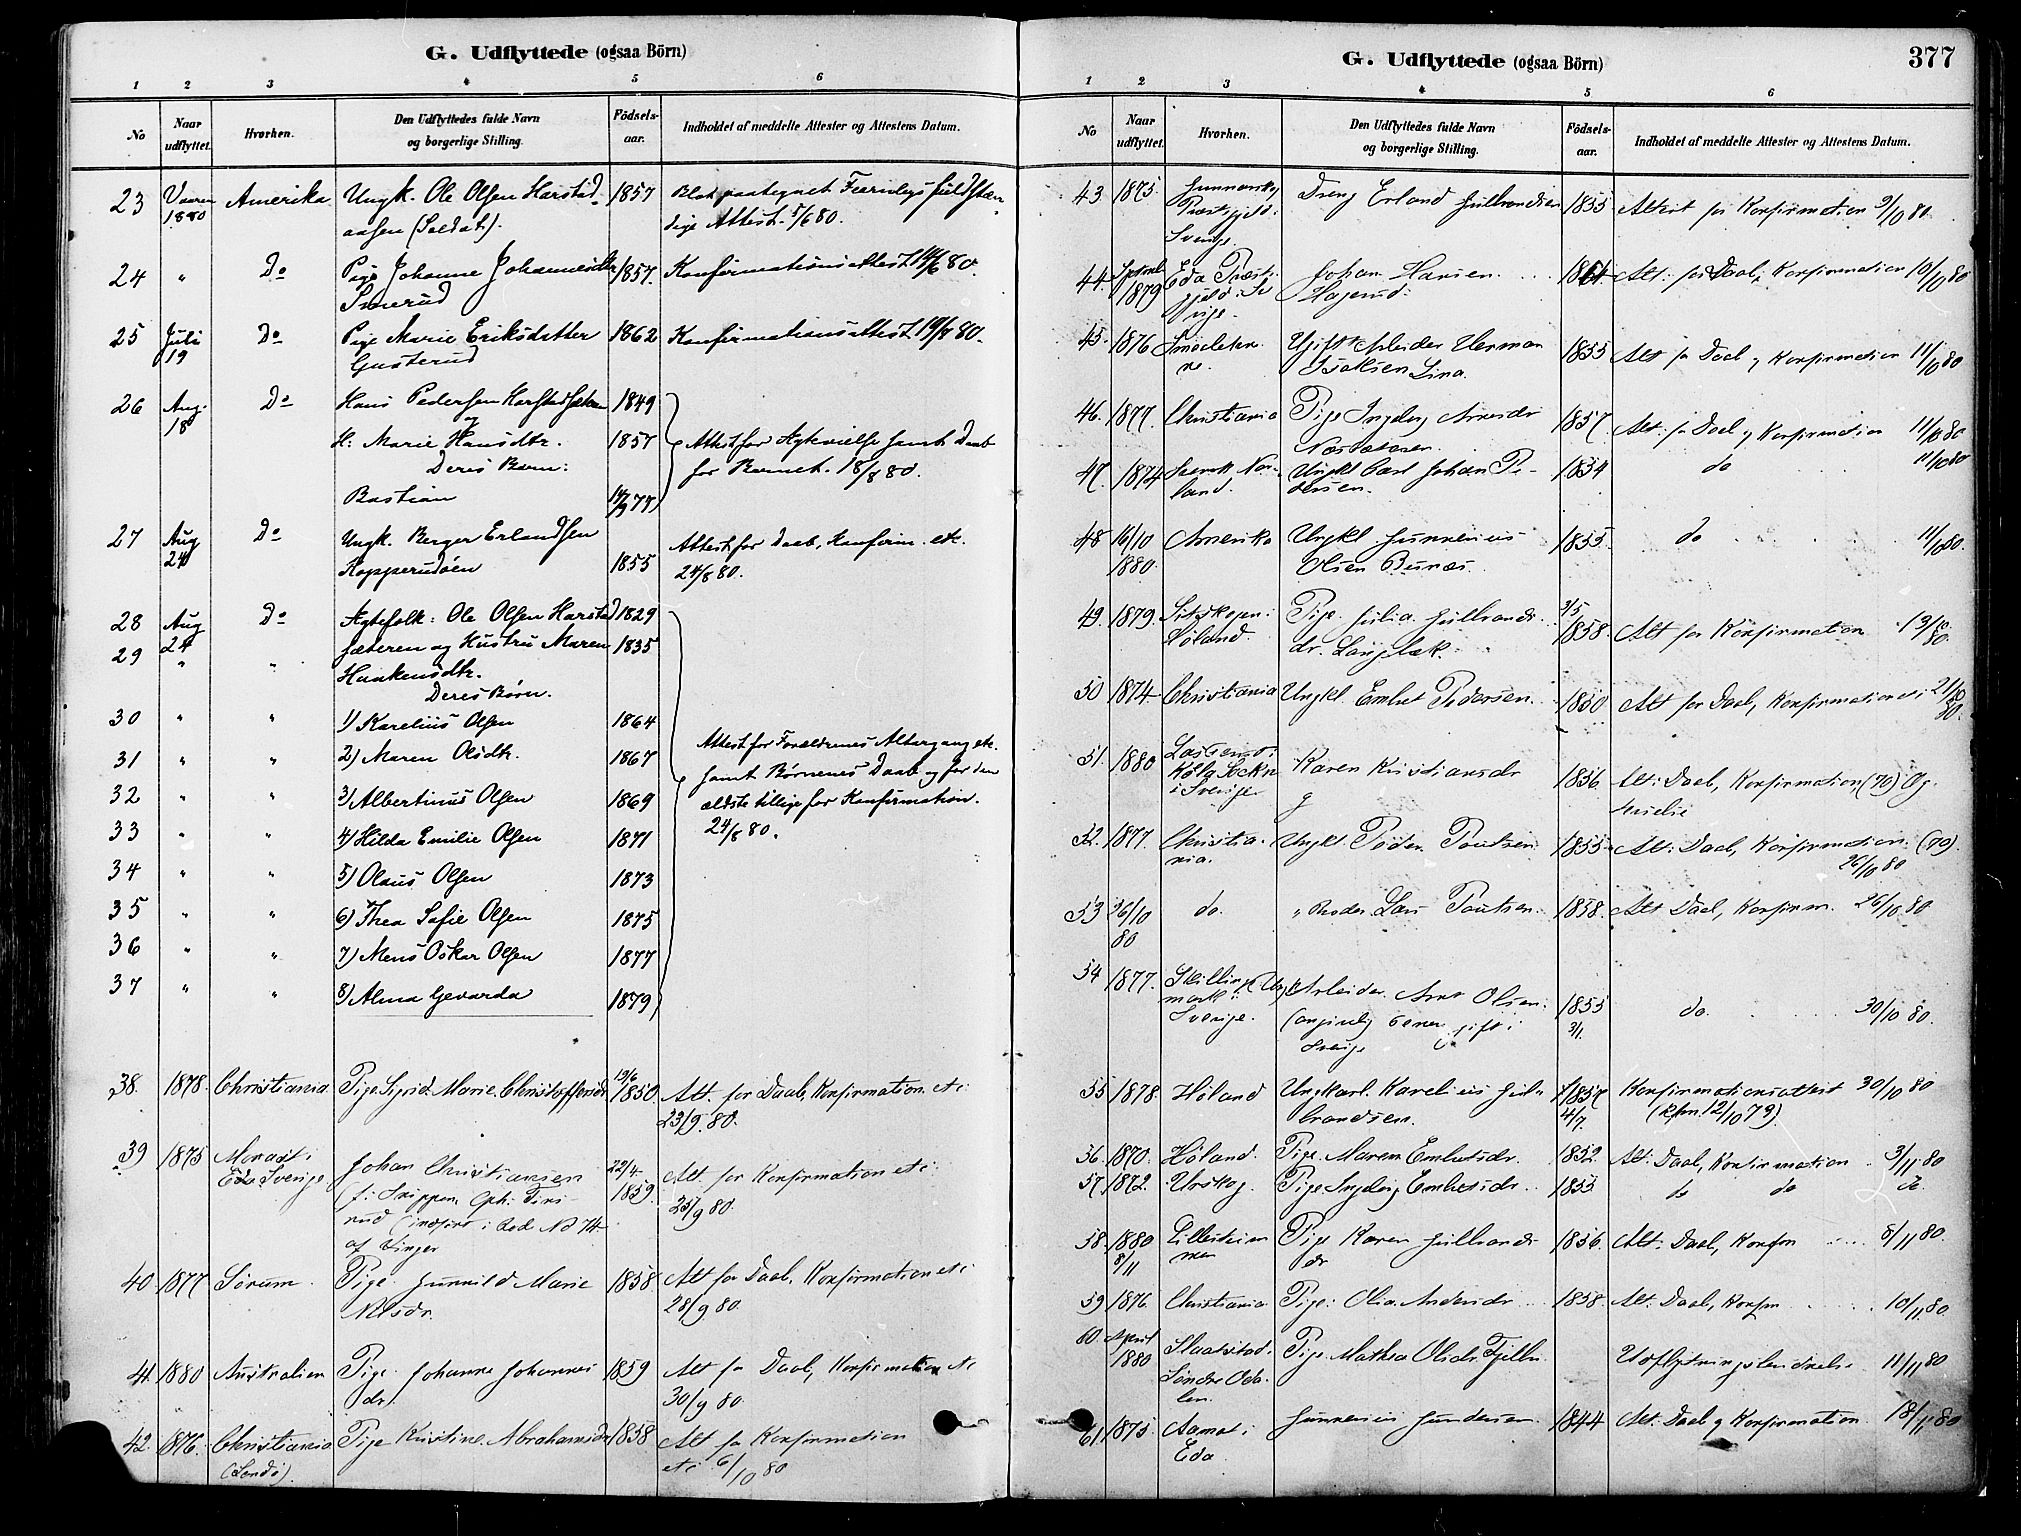 G. Udflyttede (ogsaa Börn)
1 2 3 4 5 6
No
Naar udflyttet.
Hvorhen.
Den Udflyttedes fulde Navn og borgerlige Stilling.
Födsels-aar.
Indholdet af meddelte Attester og Attestens Datum.
23 Vaaren 1880 Amerika Ungk. Ole Olsen Harstad- 1857
aasen (Soldat). dige Attest. 5/6 80.
24 " Do Pige Johanne 1857. Konfirmationsattest 14/6 80.
Smerud
25 Juli 19 Do Pige Marie Eriksdatter 1862 Konfirmationsattest 19/7 80.
Gusterud
26 Aug. 18 Do Hans Pedersen 1849
og
H. Marie Hansdtr. 1857 Attest for Ægtevielse samt Daab
Deres Barn: for Barnet. 18/8 80.
Bastian 77
27 Aug 24 Do Ungk. Berger Erlandsen Attest for Daab, Konfirm. etc.
Kopperudöen 1855 24/8 80.
28 Aug 24 Do Ægtefolk: Ole Olsen Harstad 1829
29 " " sæteren og Hustru Maren 1835
Haakensdtr.
Deres Börn.
30 " " 1) Karelius Olsen 1864
31 " " 2) Maren Olsdtr. 1867 Attest for Forældrenes Altergang etc.
samt Börnenes Daab og for den
32 " " 3) Albertinus Olsen 1869 ældste tillige for Konfirmation.
33 " " 4) Hilda Emilie Olsen 1871 24/8 80.
34 " " 5) Olaus Olsen 1873
35 " " 6) Thea Sofie Olsen 1875
36 " " 7) Mens Oskar Olsen 1877
37 " " 8) Alma Gevarda 1879
38. 1878. Christiania Pige Sigrid Marie Christoffersdr 1850. Att. for Daab, Konfirmation etc
23/9 80.
39 1875 Morast i Johan Christiansen 22/4 1859. Att. for Konfirmation etc
Eda Sverige 25/9 80.
af Vinger
40. 1877 Sörum. Pige Gunnild Marie 1858. Att for Daab, Konfirmation etc
Nilsdr. 28/9 80.
41. 1880 Australien Pige Johanne Johannes 1859 Att for Daab, Konfirmation etc
dr. 30/9 80.
42. 1876. Christiania Pige Kristine Abrahamsdr 1858 Att for Konfirmation
etc 6/10 80
G. Udflyttede (ogsaa Börn)
377
1 2 3 4 5 6
No
Naar udflyttet.
Hvorhen.
Den Udflyttedes fulde Navn og borgerlige Stilling.
Födsels-aar.
Indholdet af meddelte Attester og Attestens Datum.
43. 1875. Gunnarskog Dreng Erland Gulbrandsen 1855 Attest for Konfirmation 9/10 80
Præstgjeld i
Sverige.
44. 1879 Eda Præste- Johan Hansen Att: for Daab, Konfirmation 10/10 80
gjeld i Sve- Hagerud.
rige.
45. 1876 Gift Arbeider Herman 1855 Att for Daab og Konfirmation 11/10 80
46. 1877. Christiania Pige Ingeborg Arnesdr 1857. Att: for Daab og Konfirmation 11/10 80
47. 1874 Svensk Nor- Ungkl Carl Johan Pe- 1854 do 11/10 80
land. dersen.
48 16/10 1880. Amerika Ungkl. Gunnerius 1855 do 11/10 80.
Olsen Busnæs.
49. 1879. Pige Julia Gulbrands- 1858. Att for Konfirmation 13/10 80.
Höland. dr. Langbæk.
50 1874 Christiania Ungkl. Embret Pedersen 1850 Att for Daab, Konfirmation etc 21/10 80.
51. 1880 Karen Kristiansdr 1856. Att: Daab, Konfirmation (70) og
i Sverige.
52. 1877. Christia- Ungkl. Peder Poulsen 1855 Att: Daab, Konfirmation (70).
nia. 26/10 80
53 26/10 80 do. " Broder Lars Poulsen. 1858. Att Daab, Konfirm. 26/10 80
54 1877. Skillings- Arbeider Arne Olsen. 1855 do. 30/10 80.
mark i 3/1.
Sverige. gift i
Sverige
55 1878. Höland Ungkarl Karelius Gul- Konfirmationsattest 30/10 80
brandsen. 4/7. (Kfm. 12/10 73).
56. 1870. Höland. Pige Maren Embretsdr. 1852. Att: Daab, Konfirmation 3/11 80
57. 1872. Urskog. Pige Ingeborg Embretsdr. 1855 do do do
58. 1880 8/11 Lilleström- Pige Karen Gulbrands- 1856. Att: Daab, Konfm 8/11 80.
men dr
59 1876. Christiania Pige: Olia Andersdr 1858. Att. Daab, Konfm 10/11 80
60. April 1880 Slaastad i Pige Mathea Olsdr Fjeld Udflytningslendnelse 11/11 80
Söndre Oda-
len.
61. 1875 Aamot i Gunnerius Gundersen 1844 Att. Daab og Konfirmation. 18/11 80
Eda